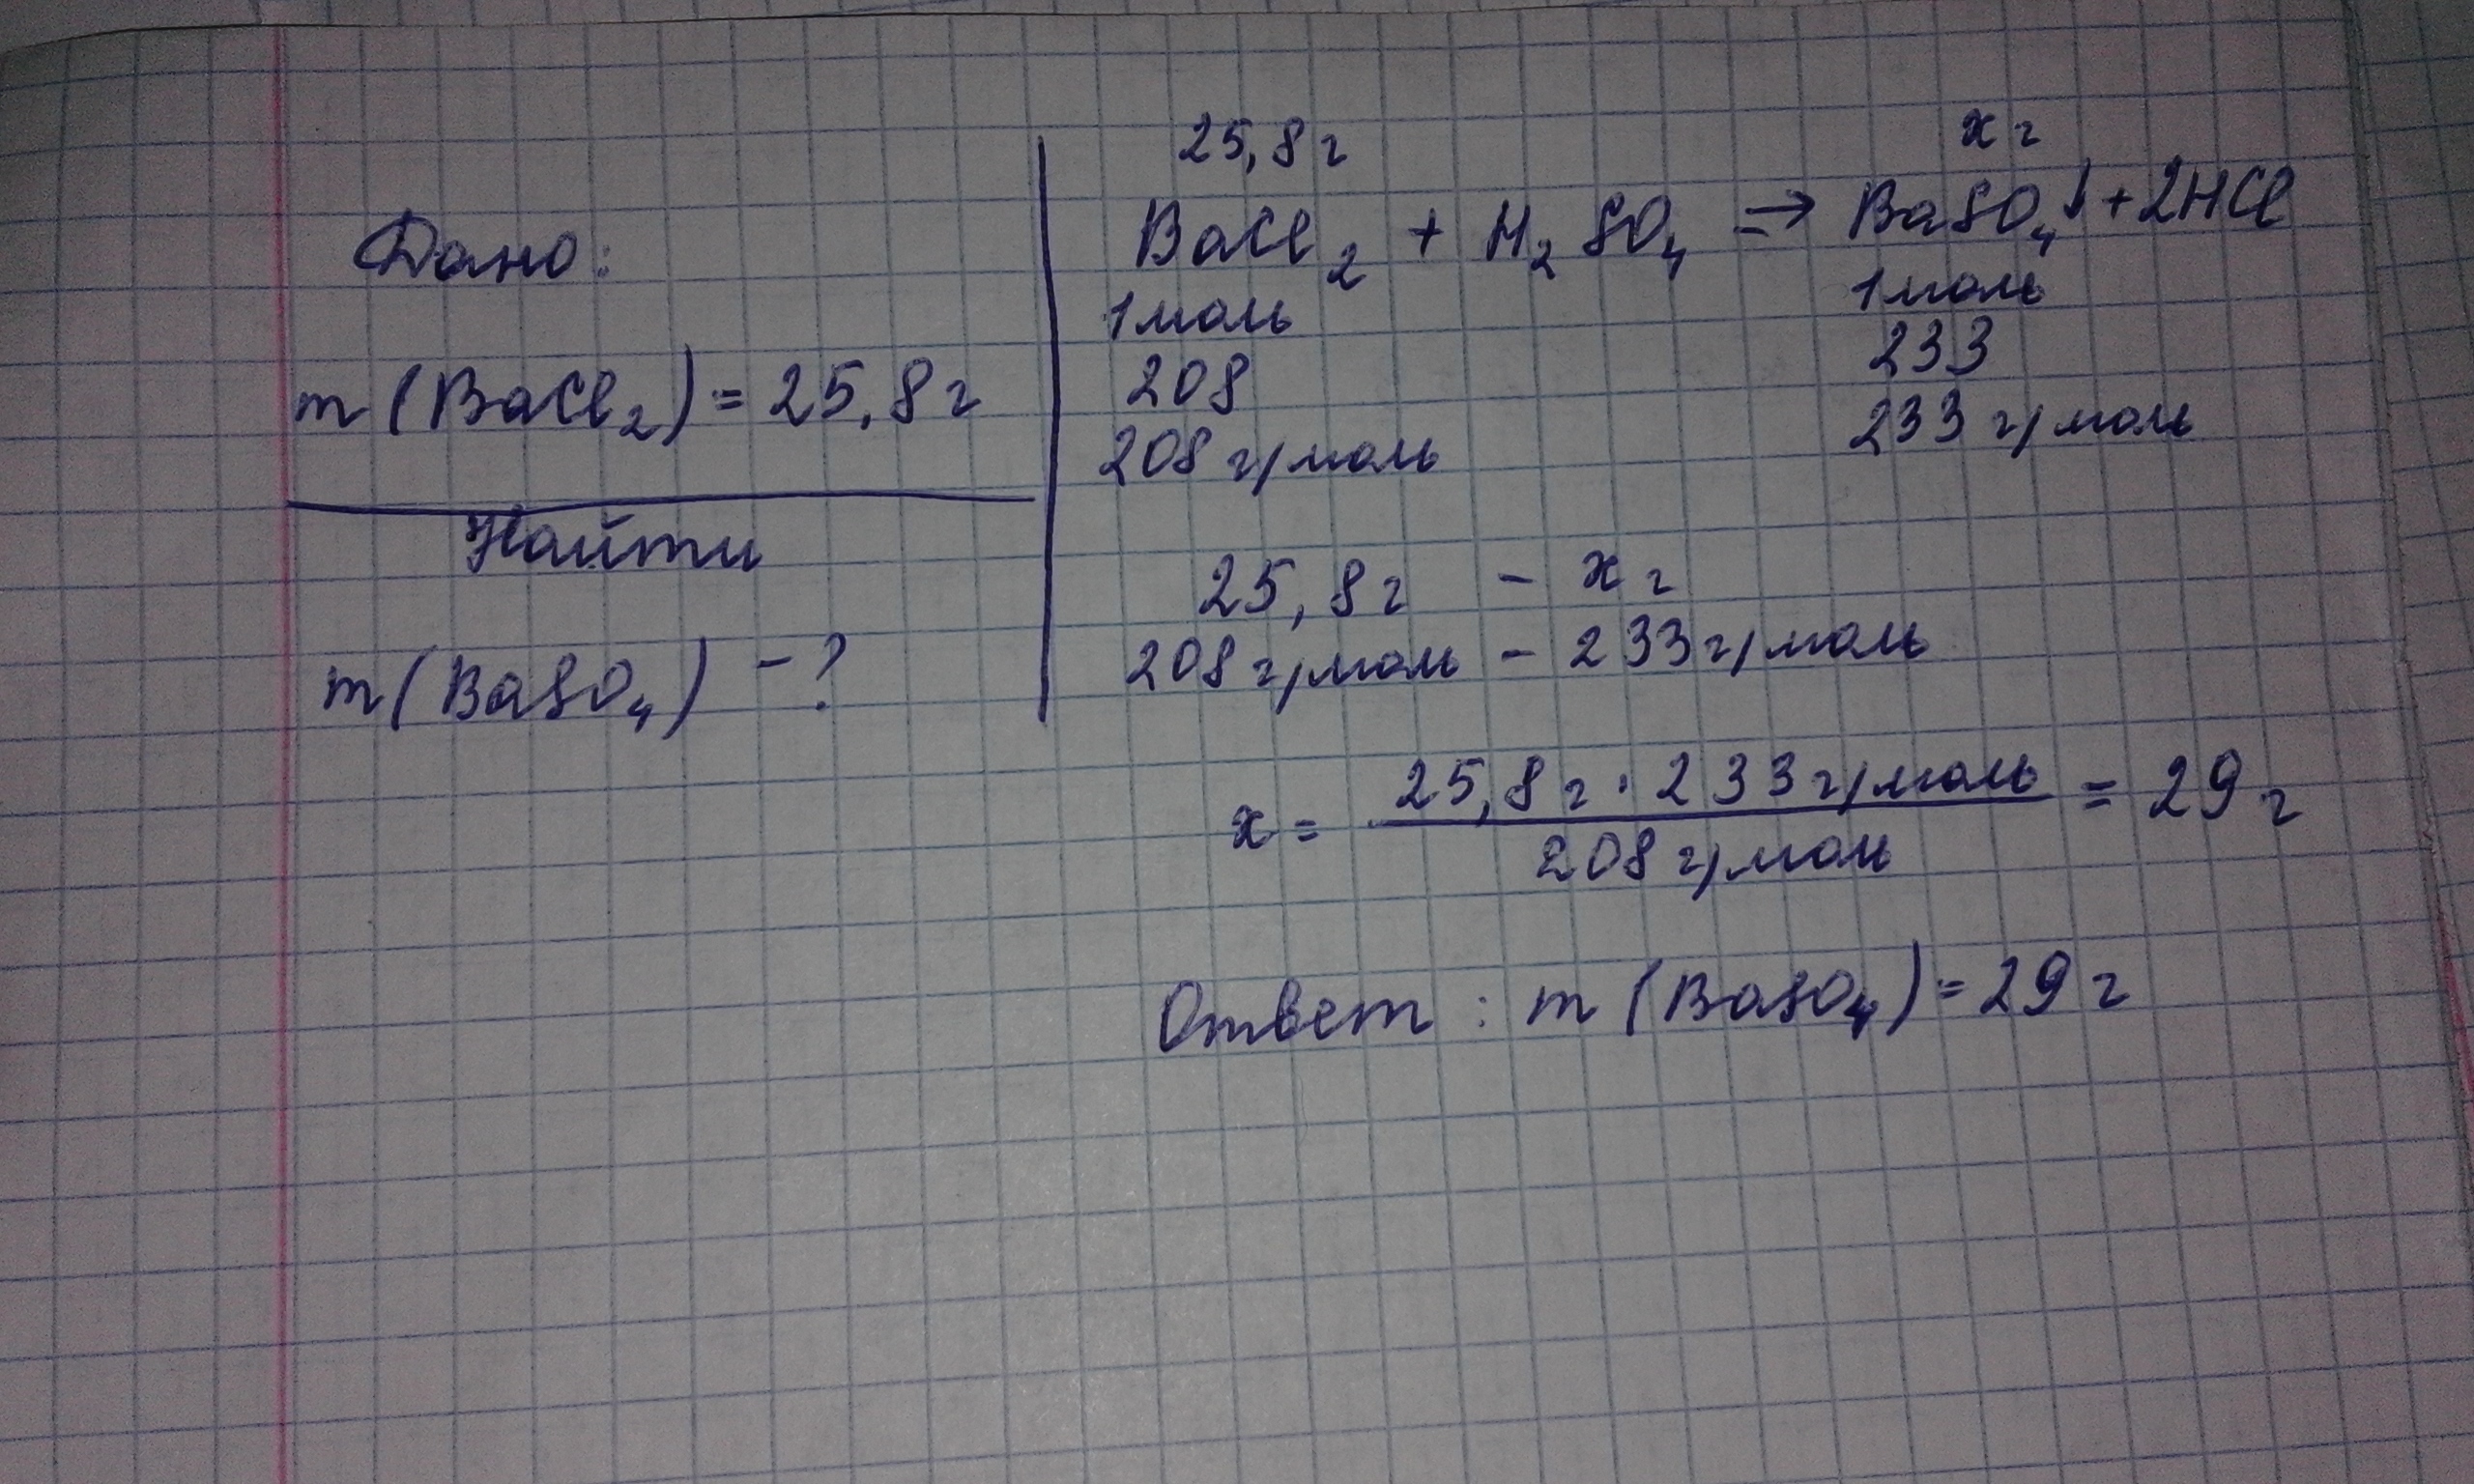 Дано:
m (BaCl₂) = 25,8 г
Найти
m (BaSO₄) - ?
25,8 г x г
BaCl₂ + H₂SO₄ => BaSO₄↓ + 2HCl
1 моль 1 моль
208 233
208 г/моль 233 г/моль
25,8 г - x г
208 г/моль - 233 г/моль
x = 25,8 г · 233 г/моль / 208 г/моль = 29 г
Ответ : m (BaSO₄) = 29 г